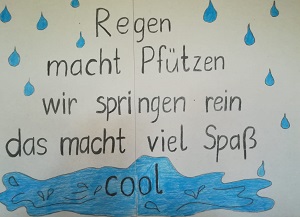 Regen
macht Pfützen
wir springen rein
das macht viel Spaß
cool